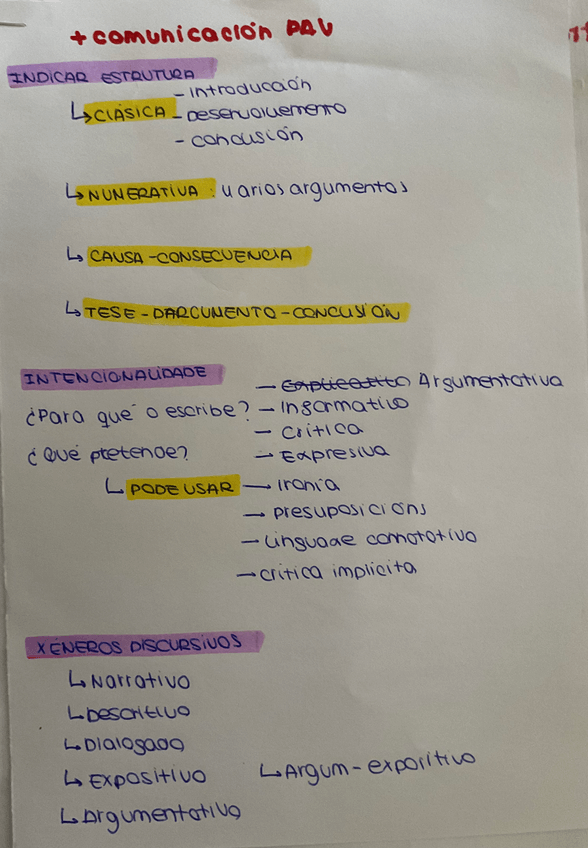 + comunicación PAU
INDICAR ESTRUTURA
↳ CLÁSICA
- introducción
- Desenvolvemento
- conclusión
↳ NUNERATIVA: varios argumentos
↳ CAUSA-CONSECUENCIA
↳ TESE - DARGUMENTO - CONCLUSIÓN
INTENCIONALIDADE
— Explicativo Argumentativa
¿Para qué o escribe? — Informativo
— Crítica
¿Qué pretende? — Expresiva
↳ PODE USAR — Ironía
— presuposicións
— Linguaxe connotativo
— crítica implícita
XÉNEROS DISCURSIVOS
↳ Narrativo
↳ Descritivo
↳ Dialogado
↳ Expositivo ↳ Argum-expositivo
↳ Argumentativo